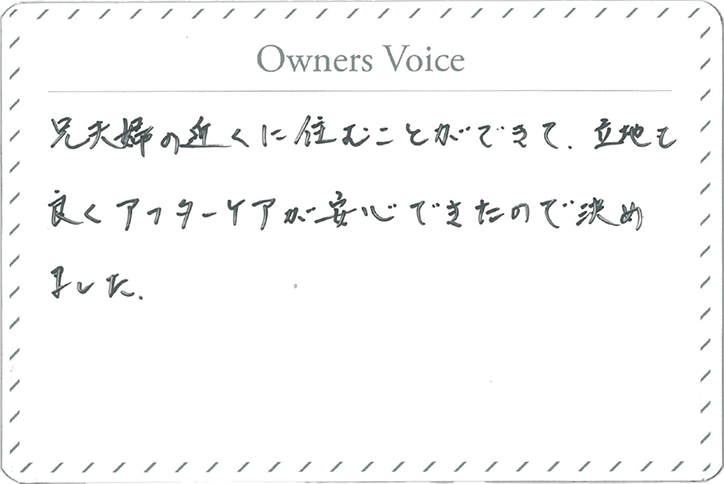 Owners Voice
兄夫婦の近くに住むことができて、立地も
良くアフターケアが安心できたので決め
ました。